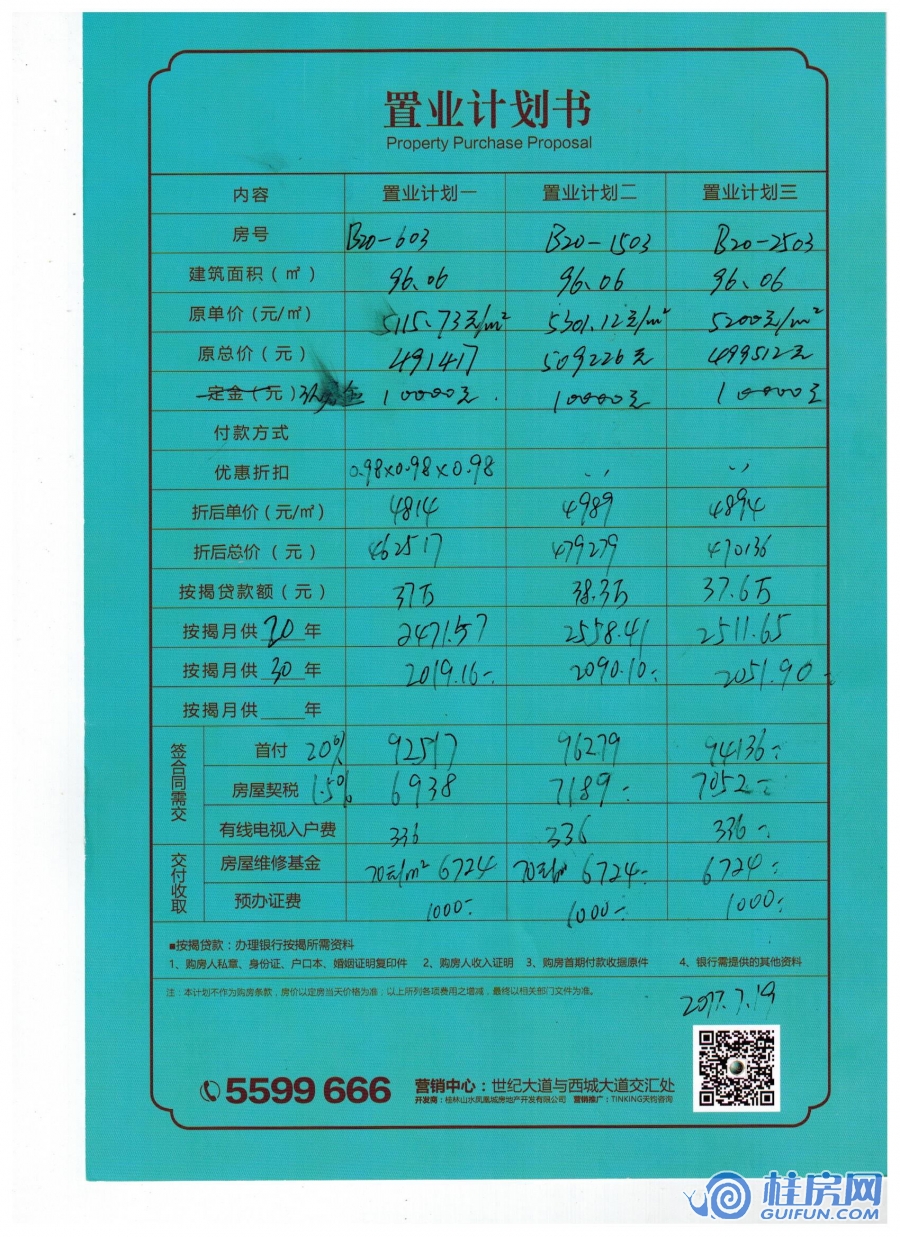 置业计划书
Property Purchase Proposal
内容 置业计划一 置业计划二 置业计划三
房号 B20-603 B20-1503 B20-2503
建筑面积（㎡） 96.06 96.06 96.06
原单价（元/㎡） 5115.73元/m² 5301.12元/m² 5200元/m²
原总价（元） 491417 509226元 499512元
定金（元） 10000元. 10000元 10000元
付款方式
优惠折扣 0.98×0.98×0.98 、、 、、
折后单价（元/㎡） 4814 4989 4894
折后总价（元） 462517 479279 470136
按揭贷款额（元） 37万 38.3万 37.6万
按揭月供 20 年 2471.57 2558.41 2511.65
按揭月供 30 年 2019.16 2090.10 2051.90
按揭月供____年
签合同需交
首付 20% 92517 96279 94136
房屋契税 1.5% 6938 7189 7052
有线电视入户费 336 336 336
交付收取
房屋维修基金 70元/m² 6724 70元/m² 6724 6724
预办证费 1000 1000 1000
■按揭贷款：办理银行按揭所需资料
1、购房人私章、身份证、户口本、婚姻证明复印件 2、购房人收入证明 3、购房首期付款收据原件 4、银行需提供的其他资料
注：本计划不作为购房条款，房价以定房当天价格为准；以上所列各项费用之增减，最终以相关部门文件为准。
2017.7.19
5599 666
营销中心：世纪大道与西城大道交汇处
开发商：桂林山水凤凰城房地产开发有限公司 营销推广：TINKING天钧咨询
桂房网
GUIFUN.COM